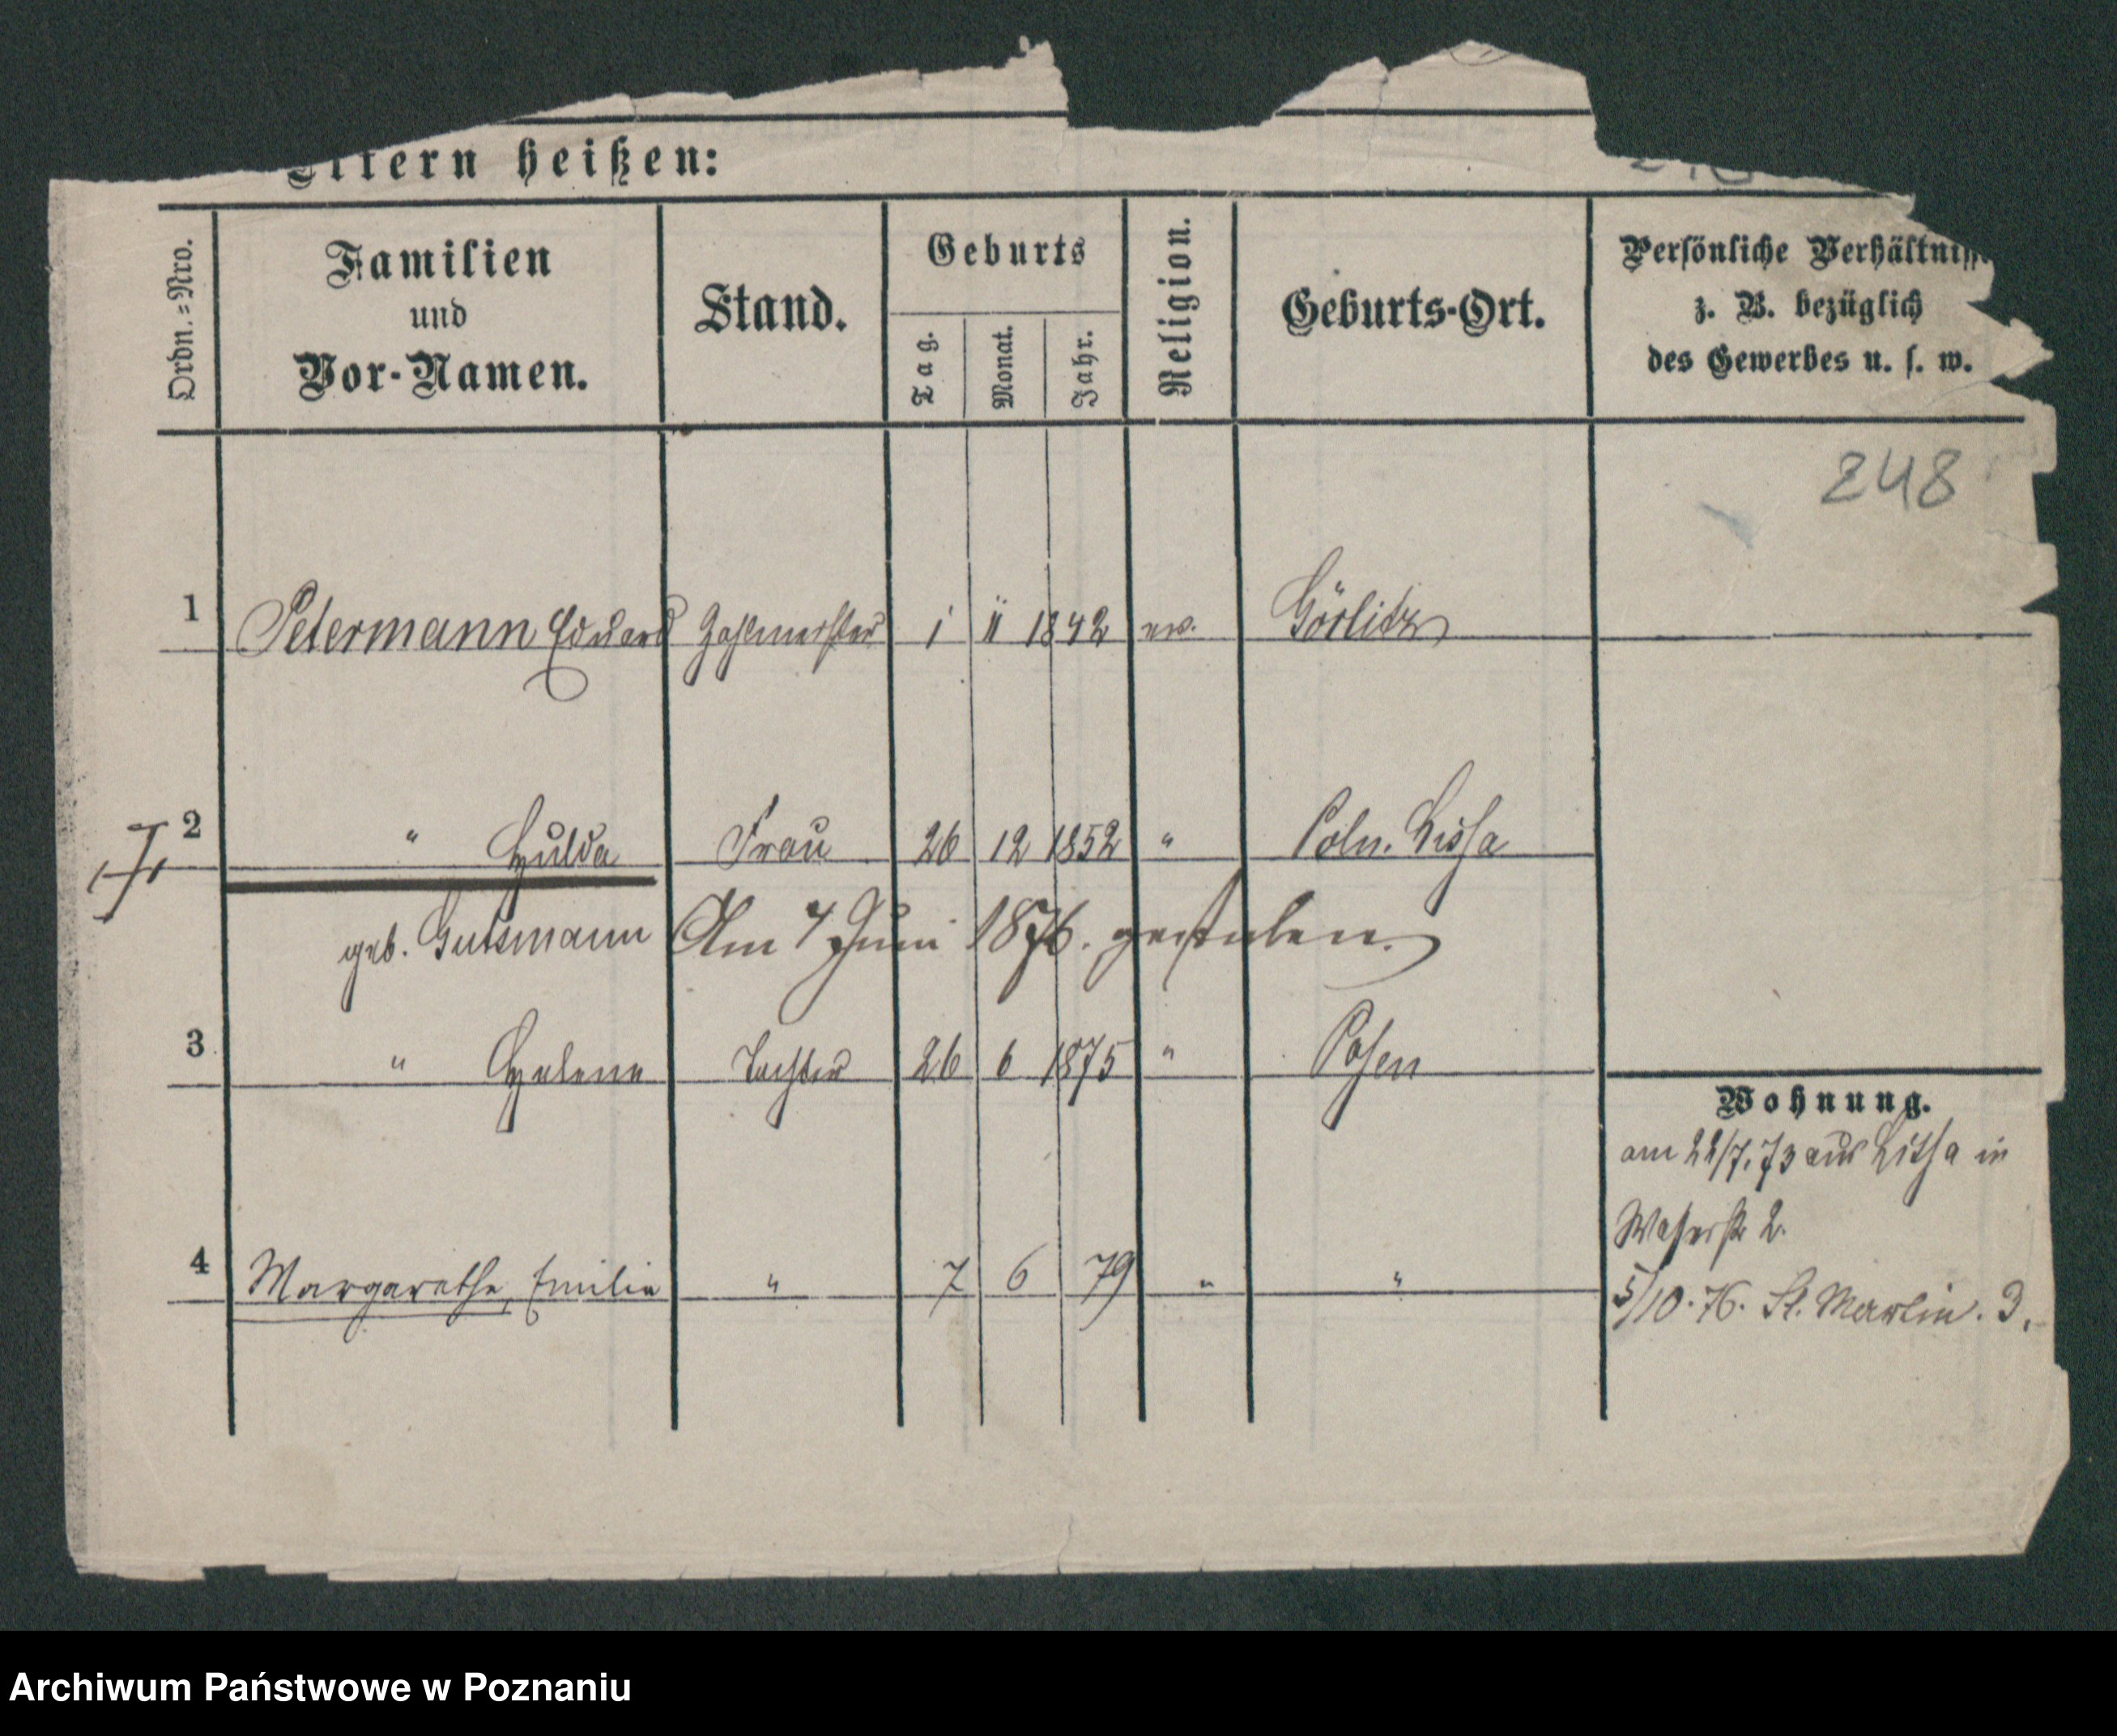 Eltern heißen:
Ordn.=Nro.
Familien
und
Vor-Namen.
Stand.
Geburts
Tag.
Monat.
Jahr.
Religion.
Geburts-Ort.
Persönliche Verhältnisse
z. B. bezüglich
des Gewerbes u. s. w.
248
1 Petermann Eduard Zahlmeister 1 11 1842 ev. Görlitz
2 " Hulda Frau 26 12 1852 " Poln. Lissa
geb. Gutsmann Am 7 Juni 1876. gestorben.
3 " Helene Tochter 26 6 1875 " Posen
Wohnung.
am 22/7.73 aus Lissa in
Wasserstr 2.
4 Margarethe, Emilie " 7 6 79 " "
5/10.76. St. Martin. 3.
Archiwum Państwowe w Poznaniu